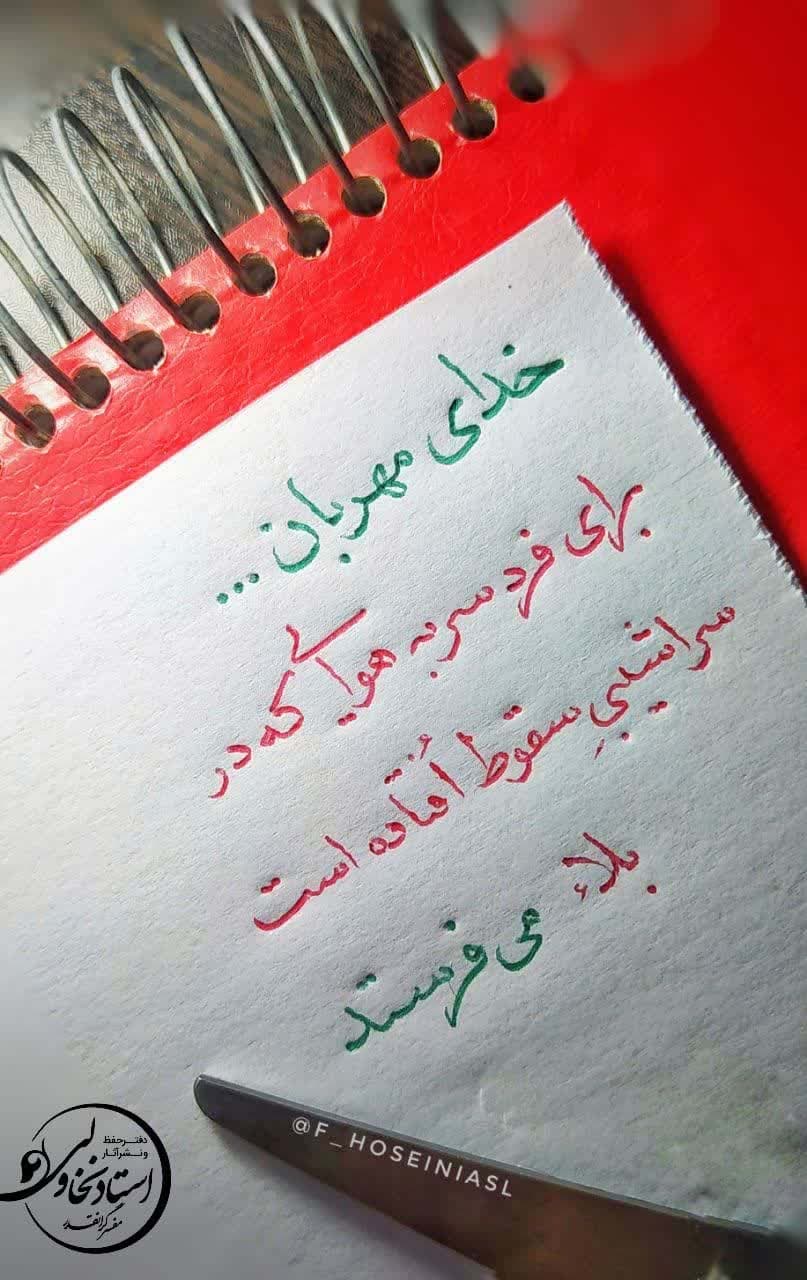 خدای مهربان...
برای فرد سر به هوایی که در
سراشیبیِ سقوط اُفتاده است
بلاء می فرستد
@F_HOSEINIASL
دفتر حفظ
و نشر آثار
استاد نخاولی
مفسر گرانقدر